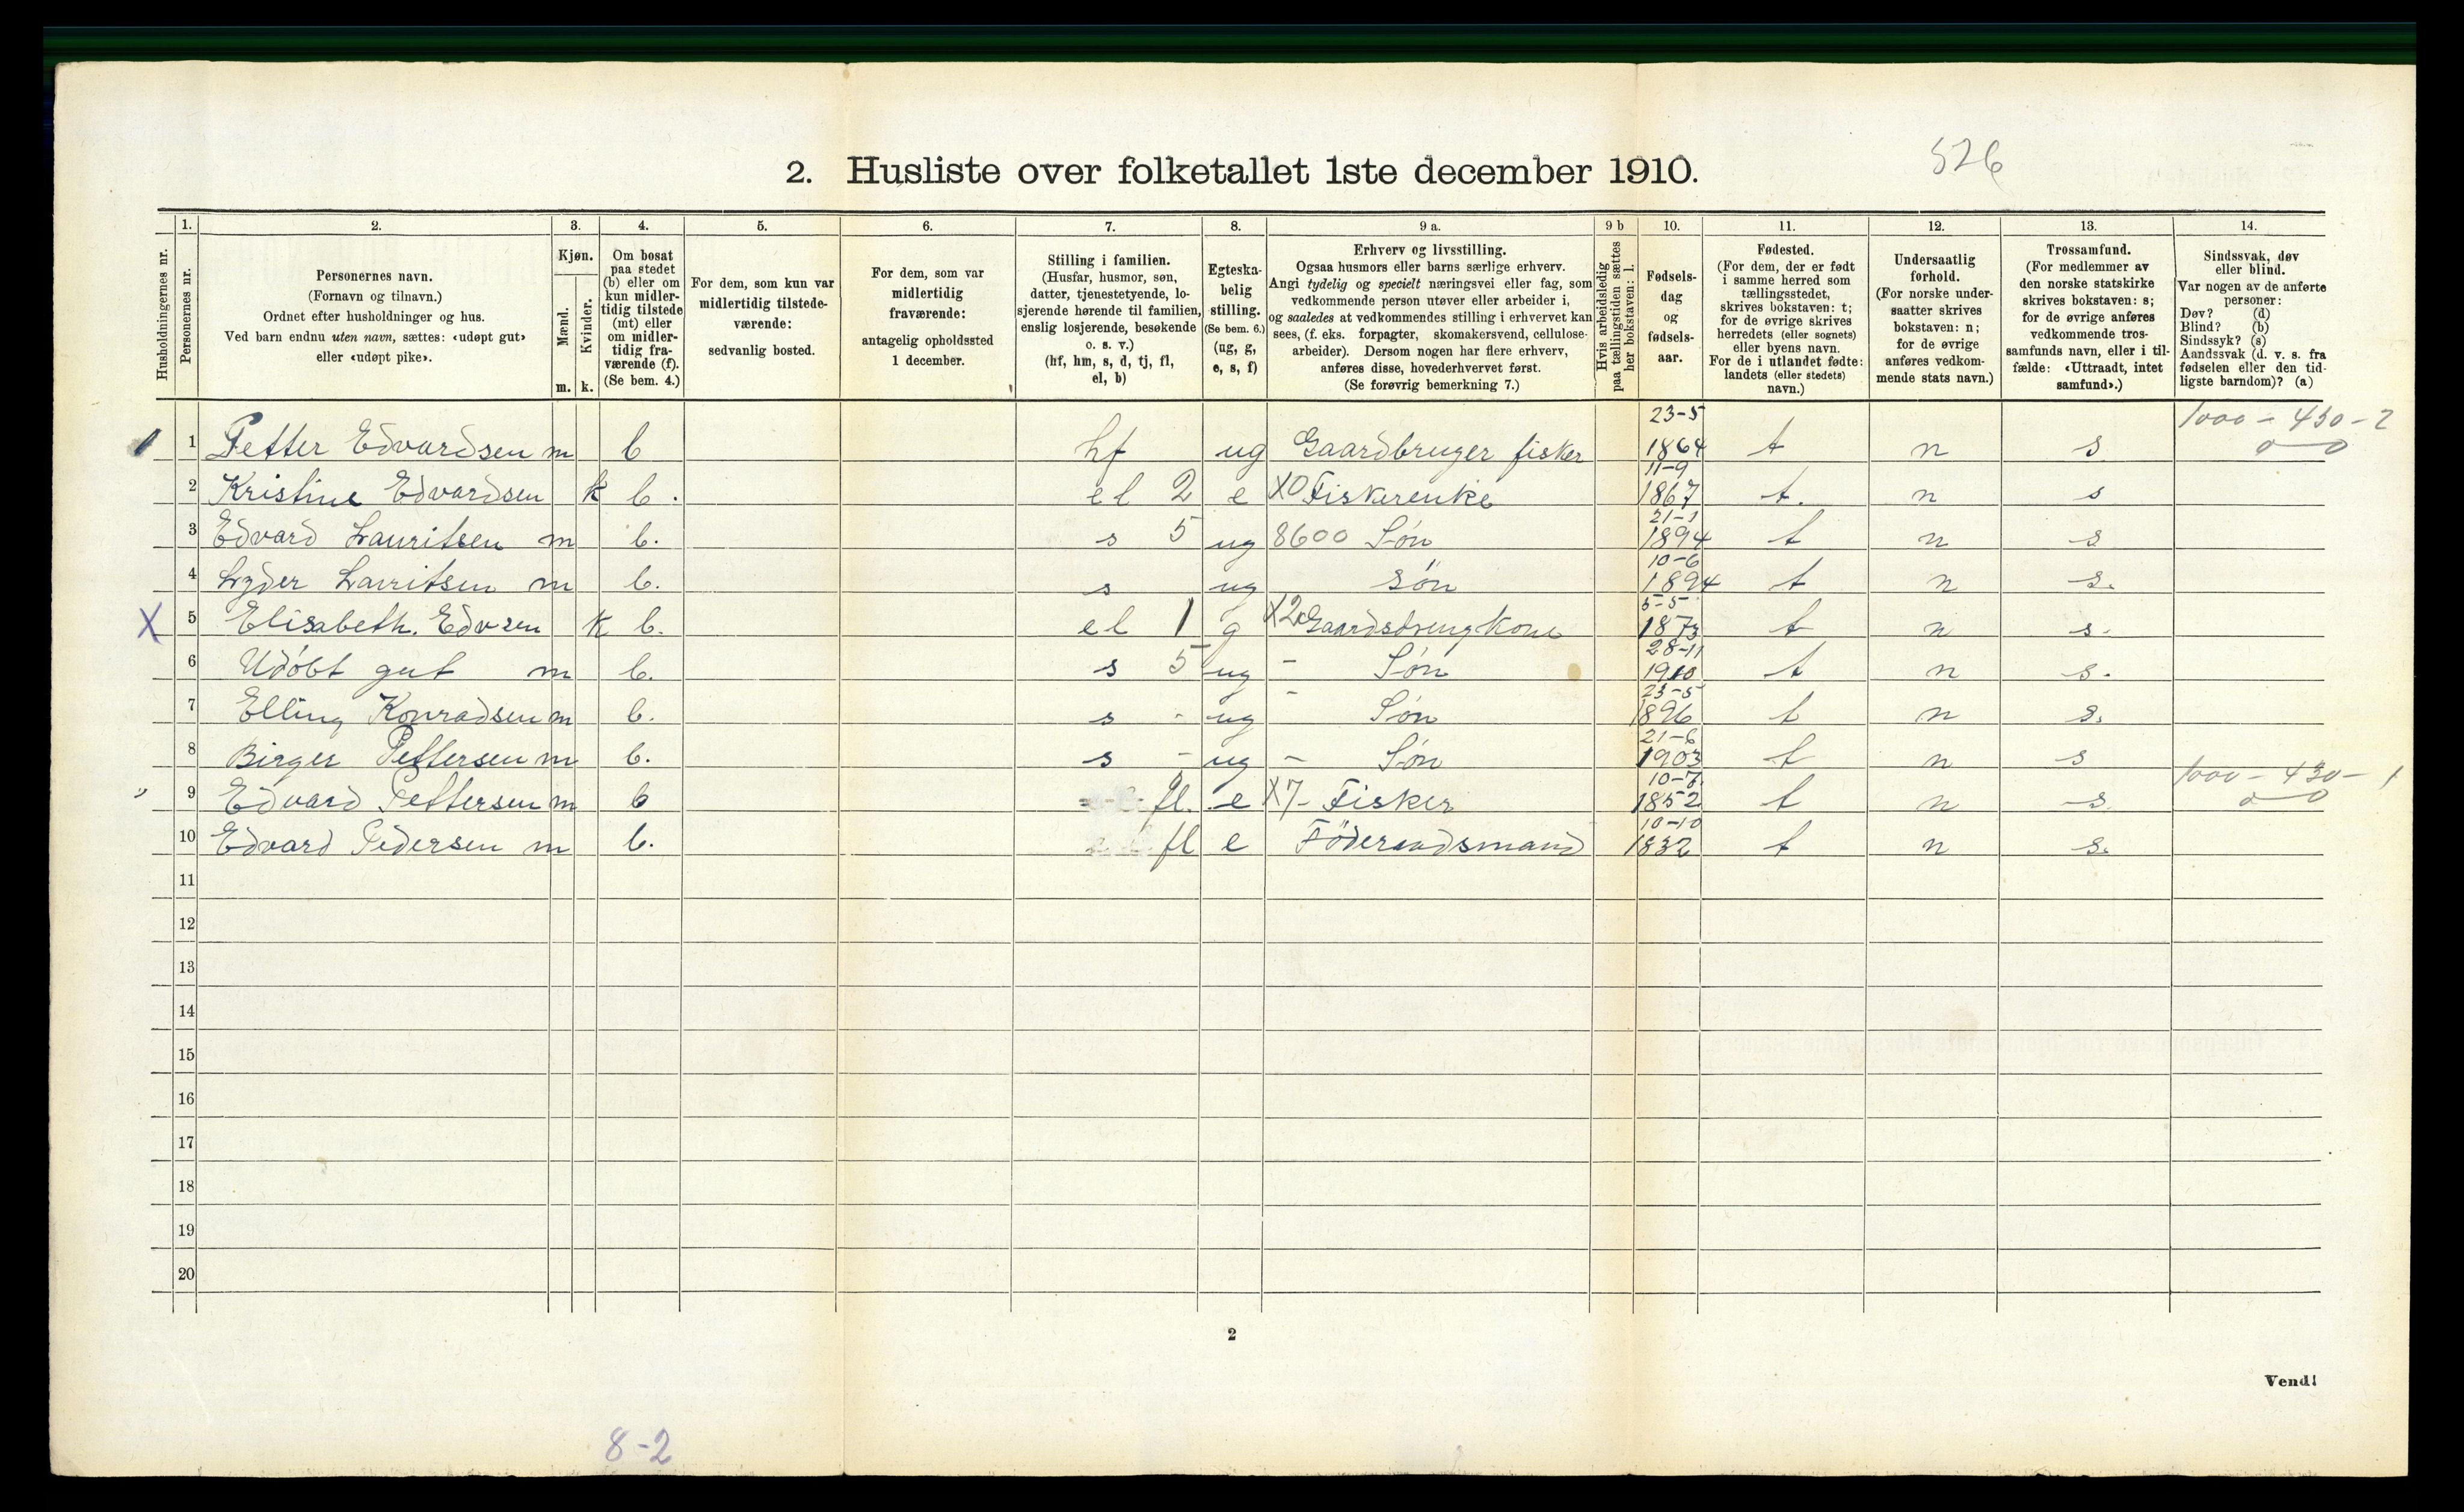 526
2. Husliste over folketallet 1ste december 1910.
Husholdningernes nr.
1.
Personernes nr.
2.
Personernes navn.
(Fornavn og tilnavn.)
Ordnet efter husholdninger og hus.
Ved barn endnu uten navn, sættes: «udøpt gut»
eller «udøpt pike».
3.
Kjøn.
Mænd.
Kvinder.
m. k.
4.
Om bosat
paa stedet
(b) eller om
kun midler-
tidig tilstede
(mt) eller
om midler-
tidig fra-
værende (f).
(Se bem. 4.)
5.
For dem, som kun var
midlertidig tilstede-
værende:
sedvanlig bosted.
6.
For dem, som var
midlertidig
fraværende:
antagelig opholdssted
1 december.
7.
Stilling i familien.
(Husfar, husmor, søn,
datter, tjenestetyende, lo-
sjerende hørende til familien,
enslig losjerende, besøkende
o. s. v.)
(hf, hm, s, d, tj, fl,
el, b)
8.
Egteska-
belig
stilling.
(Se bem. 6.)
(ug, g,
e, s, f)
9 a.
Erhverv og livsstilling.
Ogsaa husmors eller barns særlige erhverv.
Angi tydelig og specielt næringsvei eller fag, som
vedkommende person utøver eller arbeider i,
og saaledes at vedkommendes stilling i erhvervet kan
sees, (f. eks. forpagter, skomakersvend, cellulose-
arbeider). Dersom nogen har flere erhverv,
anføres disse, hovederhvervet først.
(Se forøvrig bemerkning 7.)
9 b
Hvis arbeidsledig
paa tællingstiden sættes
her bokstaven: l.
10.
Fødsels-
dag
og
fødsels-
aar.
11.
Fødested.
(For dem, der er født
i samme herred som
tællingsstedet,
skrives bokstaven: t;
for de øvrige skrives
herredets (eller sognets)
eller byens navn.
For de i utlandet fødte:
landets (eller stedets)
navn.)
12.
Undersaatlig
forhold.
(For norske under-
saatter skrives
bokstaven: n;
for de øvrige
anføres vedkom-
mende stats navn.)
13.
Trossamfund.
(For medlemmer av
den norske statskirke
skrives bokstaven: s;
for de øvrige anføres
vedkommende tros-
samfunds navn, eller i til-
fælde: «Uttraadt, intet
samfund».)
14.
Sindssvak, døv
eller blind.
Var nogen av de anførte
personer:
Døv? (d)
Blind? (b)
Sindssyk? (s)
Aandssvak (d. v. s. fra
fødselen eller den tid-
ligste barndom)? (a)
1 1 Petter Edvardsen m b hf ug Gaardbruger fisker 23-5 1864 t n s 1000-430-2 0-0
2 Kristine Edvardsen k b. el 2 e X0 Fiskerenke 11-9 1867 t. n s
3 Edvard Lauritsen m b. s 5 ug 8600 Søn 21-1 1894 t n s
4 Lyder Lauritsen m b. s ug søn 10-6 1894 t n s.
X 5 Elisabeth. Edvsen k b. el 1 g X2 Gaardsdrengkone 5-5 1873 t n s.
6 Udöbt gut m b. s 5 ug - Søn 28-11 1910 t n s.
7 Elling Konradsen m b. s - ug - Søn 23-5 1896 t n s.
8 Birger Pettersen m b. s - ug - Søn 21-6 1903 t n s
" 9 Edvard Pettersen m b fl. e X7- Fisker 10-7 1852 t n s. 1000-430-1 0-0
10 Edvard Pedersen m b. fl e Föderaadsmand 10-10 1832 t n s.
11
12
13
14
15
16
17
18
19
20
2
Vend!
8-2